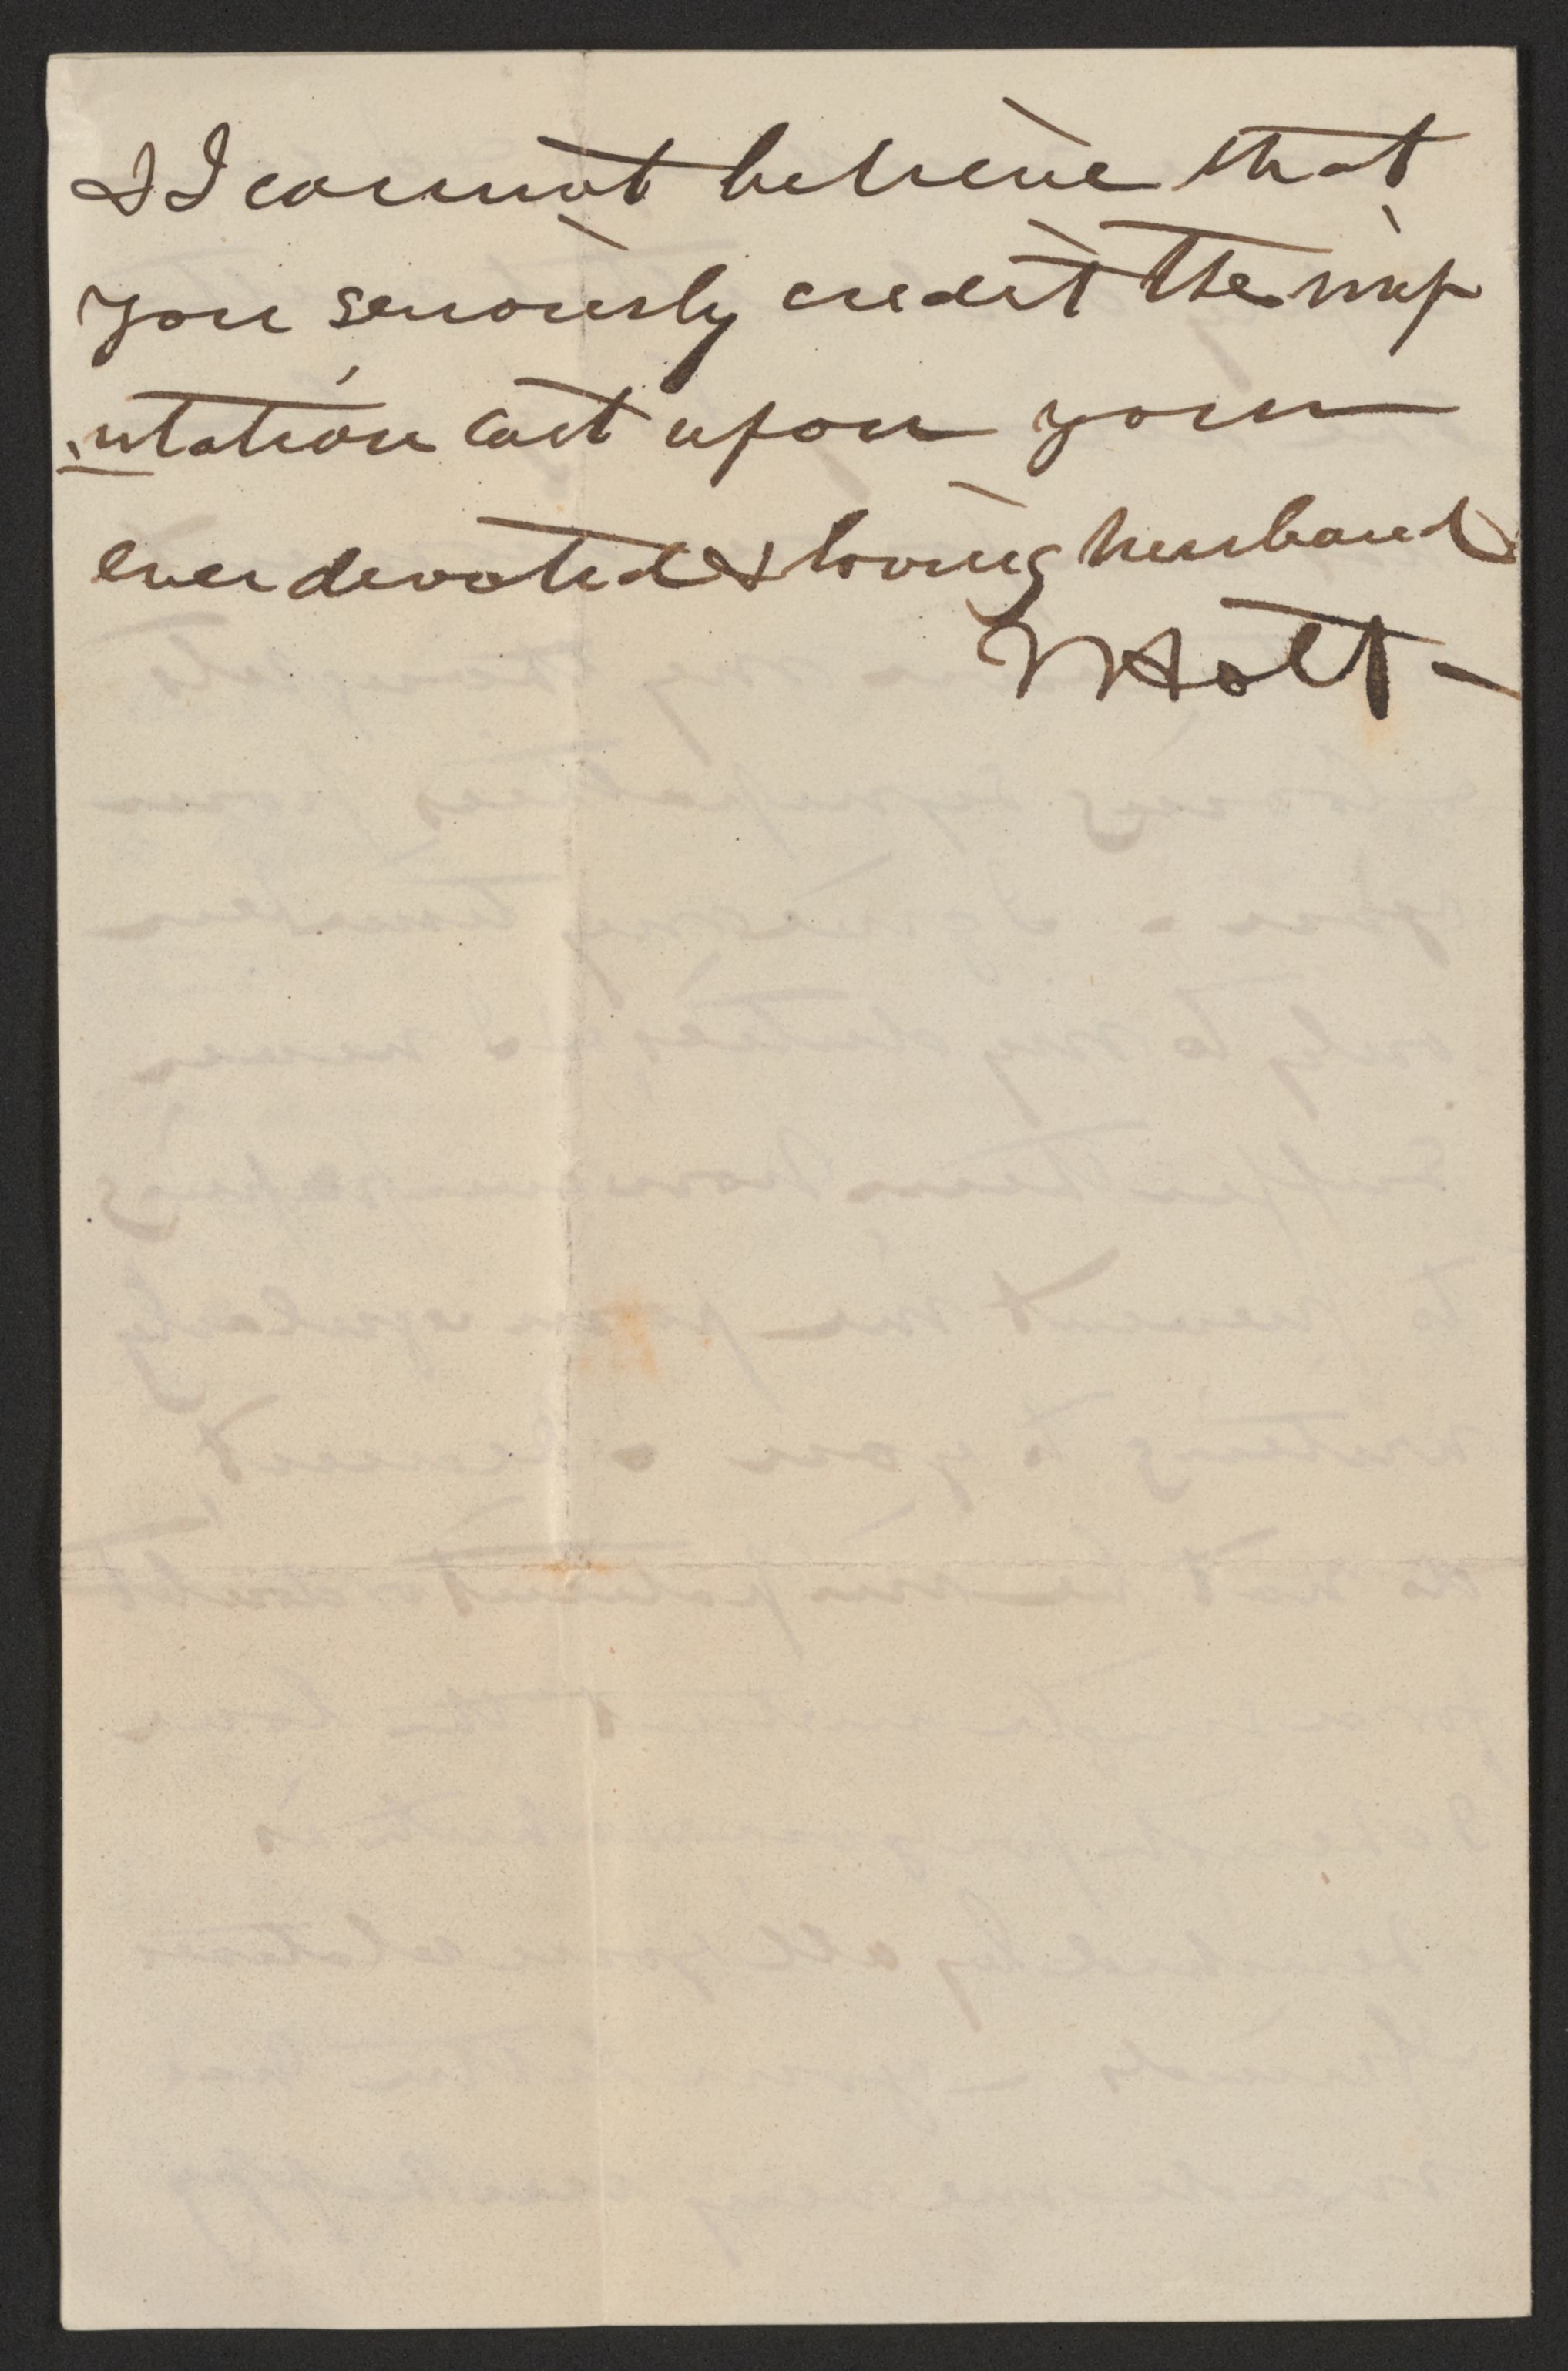 & I cannot believe that
you seriously credit the imp
utation cast upon your
ever devoted & loving husband
J Holt -